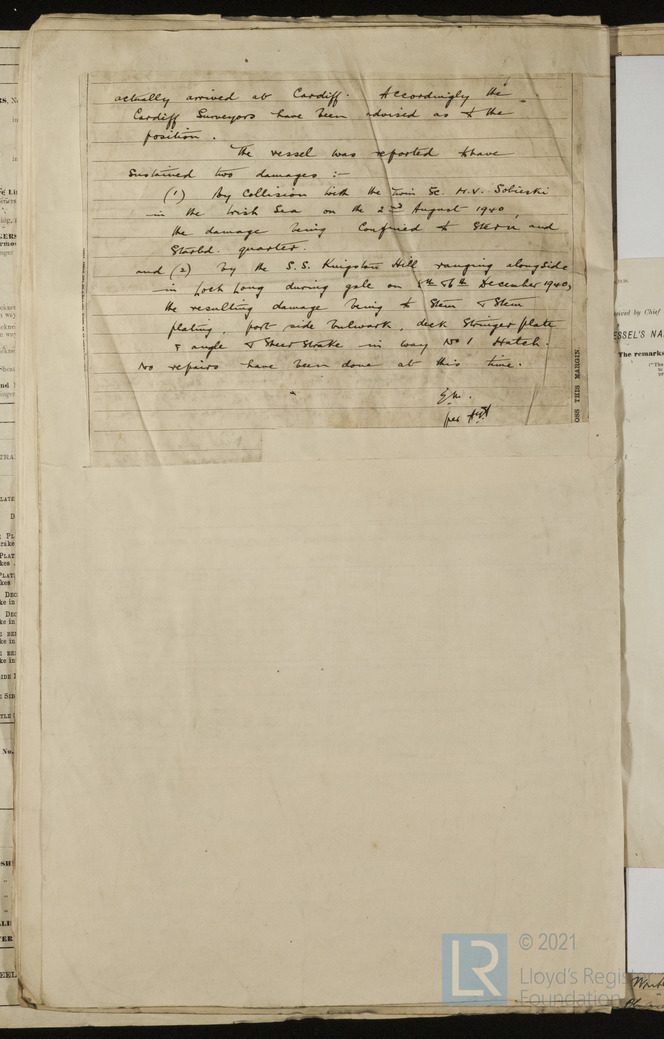 actually arrived at Cardiff. Accordingly the
Cardiff Surveyors have been advised as to the
position.
The vessel was reported to have
sustained two damages :-
(1) By Collision with the Twin Sc. M.V. Sobieski
in the Irish Sea on the 2nd August 1940,
the damage being confined to Stern and
Starbd. quarter.
and (2) by the S.S. Kingston Hill ranging alongside
in Loch Long during gale on 5th & 6th December 1940,
the resulting damage being to Stem & Stem
plating, port side bulwark, deck Stringer plate
& angle & Sheer Strake in way No 1 Hatch.
No repairs have been done at this time.
per
OSS THIS MARGIN.
eived by Chief
ESSEL'S NA
The remarks
© 2021
Lloyd's Register
Foundation